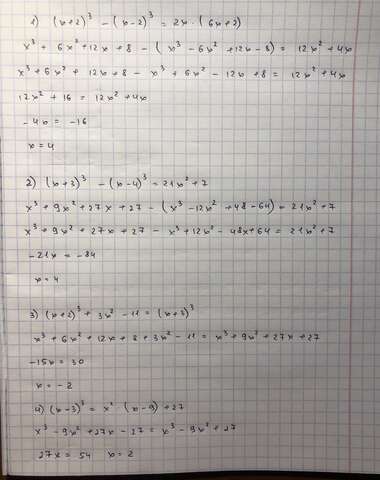 1) (x+2)³ - (x-2)³ = 2x · (6x+2)
x³ + 6x² + 12x + 8 - (x³ - 6x² + 12x - 8) = 12x² + 4x
x³ + 6x² + 12x + 8 - x³ + 6x² - 12x + 8 = 12x² + 4x
12x² + 16 = 12x² + 4x
-4x = -16
x = 4
2) (x+3)³ - (x-4)³ = 21x² + 7
x³ + 9x² + 27x + 27 - (x³ - 12x² + 48 - 64) = 21x² + 7
x³ + 9x² + 27x + 27 - x³ + 12x² - 48x + 64 = 21x² + 7
-21x = -84
x = 4
3) (x+2)³ + 3x² - 11 = (x+3)³
x³ + 6x² + 12x + 8 + 3x² - 11 = x³ + 9x² + 27x + 27
-15x = 30
x = -2
4) (x-3)³ = x² · (x-9) + 27
x³ - 9x² + 27x - 27 = x³ - 9x² + 27
27x = 54 x = 2